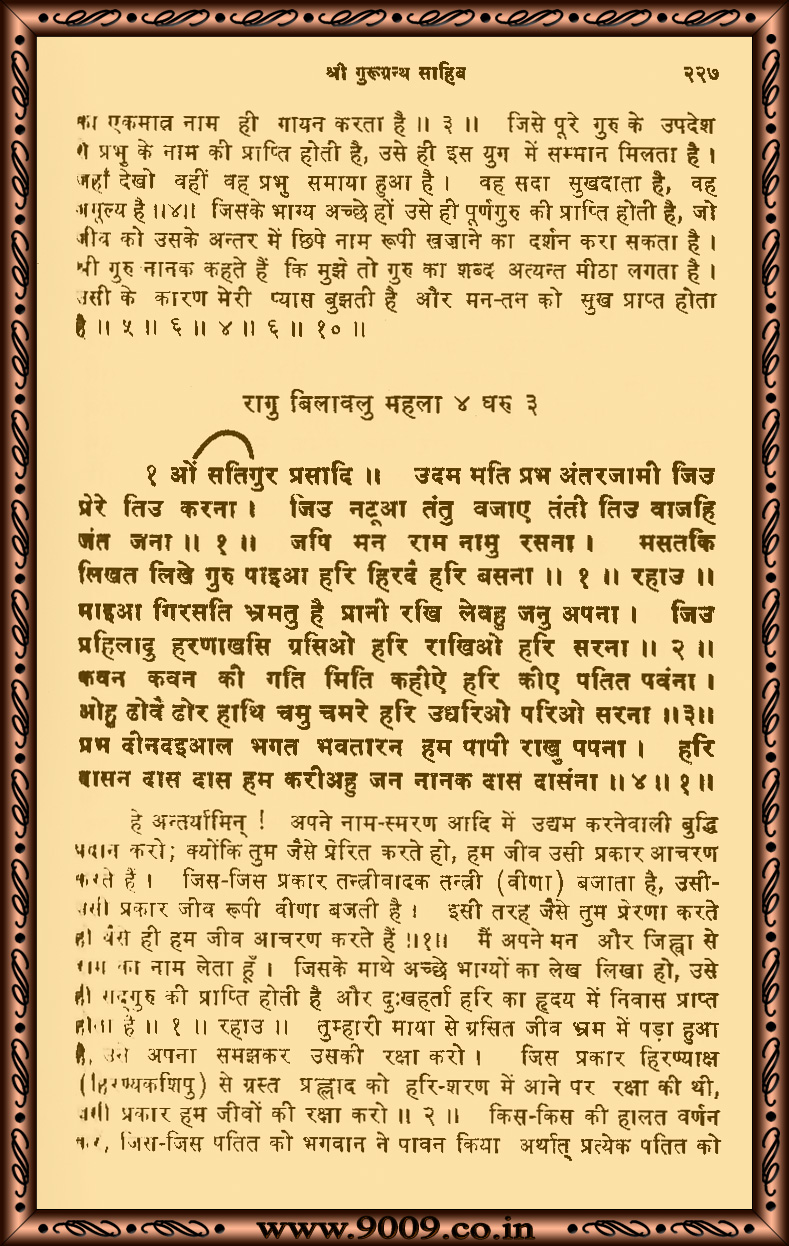 श्री गुरूग्रन्थ साहिब २२७
का एकमात्र नाम ही गायन करता है ॥ ३ ॥ जिसे पूरे गुरु के उपदेश
प्रभु के नाम की प्राप्ति होती है, उसे ही इस युग में सम्मान मिलता है ।
जहाँ देखो वहीं वह प्रभु समाया हुआ है । वह सदा सुखदाता है, वह
अमूल्य है ॥४॥ जिसके भाग्य अच्छे हों उसे ही पूर्णगुरु की प्राप्ति होती है, जो
जीव को उसके अन्तर में छिपे नाम रूपी खज़ाने का दर्शन करा सकता है ।
श्री गुरु नानक कहते हैं कि मुझे तो गुरु का शब्द अत्यन्त मीठा लगता है ।
उसी के कारण मेरी प्यास बुझती है और मन-तन को सुख प्राप्त होता
है ॥ ५ ॥ ६ ॥ ४ ॥ ६ ॥ १० ॥
रागु बिलावलु महला ४ घरु ३
१ ओं सतिगुर प्रसादि ॥ उदम मति प्रभ अंतरजामी जिउ
प्रेरे तिउ करना । जिउ नटूआ तंतु वजाए तंती तिउ वाजहि
जंत जना ॥ १ ॥ जपि मन राम नामु रसना । मसतकि
लिखत लिखे गुरु पाइआ हरि हिरदै हरि बसना ॥ १ ॥ रहाउ ॥
माइआ गिरसति भ्रमतु है प्रानी रखि लेवहु जनु अपना । जिउ
प्रहिलादु हरणाखसि ग्रसिओ हरि राखिओ हरि सरना ॥ २ ॥
कवन कवन की गति मिति कहीऐ हरि कीए पतित पवंना ।
ओहु ढोवै ढोर हाथि चमु चमरे हरि उधरिओ परिओ सरना ॥३॥
प्रभ दीनदइआल भगत भवतारन हम पापी राखु पपना । हरि
दासन दास दास हम करीअहु जन नानक दास दासंना ॥ ४ ॥ १ ॥
हे अन्तर्यामिन् ! अपने नाम-स्मरण आदि में उद्यम करनेवाली बुद्धि
प्रदान करो; क्योंकि तुम जैसे प्रेरित करते हो, हम जीव उसी प्रकार आचरण
करते हैं । जिस-जिस प्रकार तन्त्रीवादक तन्त्री (वीणा) बजाता है, उसी-
उसी प्रकार जीव रूपी वीणा बजती है । इसी तरह जैसे तुम प्रेरणा करते
हो वैसे ही हम जीव आचरण करते हैं ॥१॥ मैं अपने मन और जिह्वा से
राम का नाम लेता हूँ । जिसके माथे अच्छे भाग्यों का लेख लिखा हो, उसे
ही सद्गुरु की प्राप्ति होती है और दुःखहर्ता हरि का हृदय में निवास प्राप्त
होता है ॥ १ ॥ रहाउ ॥ तुम्हारी माया से ग्रसित जीव भ्रम में पड़ा हुआ
है, उसे अपना समझकर उसकी रक्षा करो । जिस प्रकार हिरण्याक्ष
(हिरण्यकशिपु) से ग्रस्त प्रह्लाद को हरि-शरण में आने पर रक्षा की थी,
उसी प्रकार हम जीवों की रक्षा करो ॥ २ ॥ किस-किस की हालत वर्णन
करूँ, जिस-जिस पतित को भगवान ने पावन किया अर्थात् प्रत्येक पतित को
www.9009.co.in